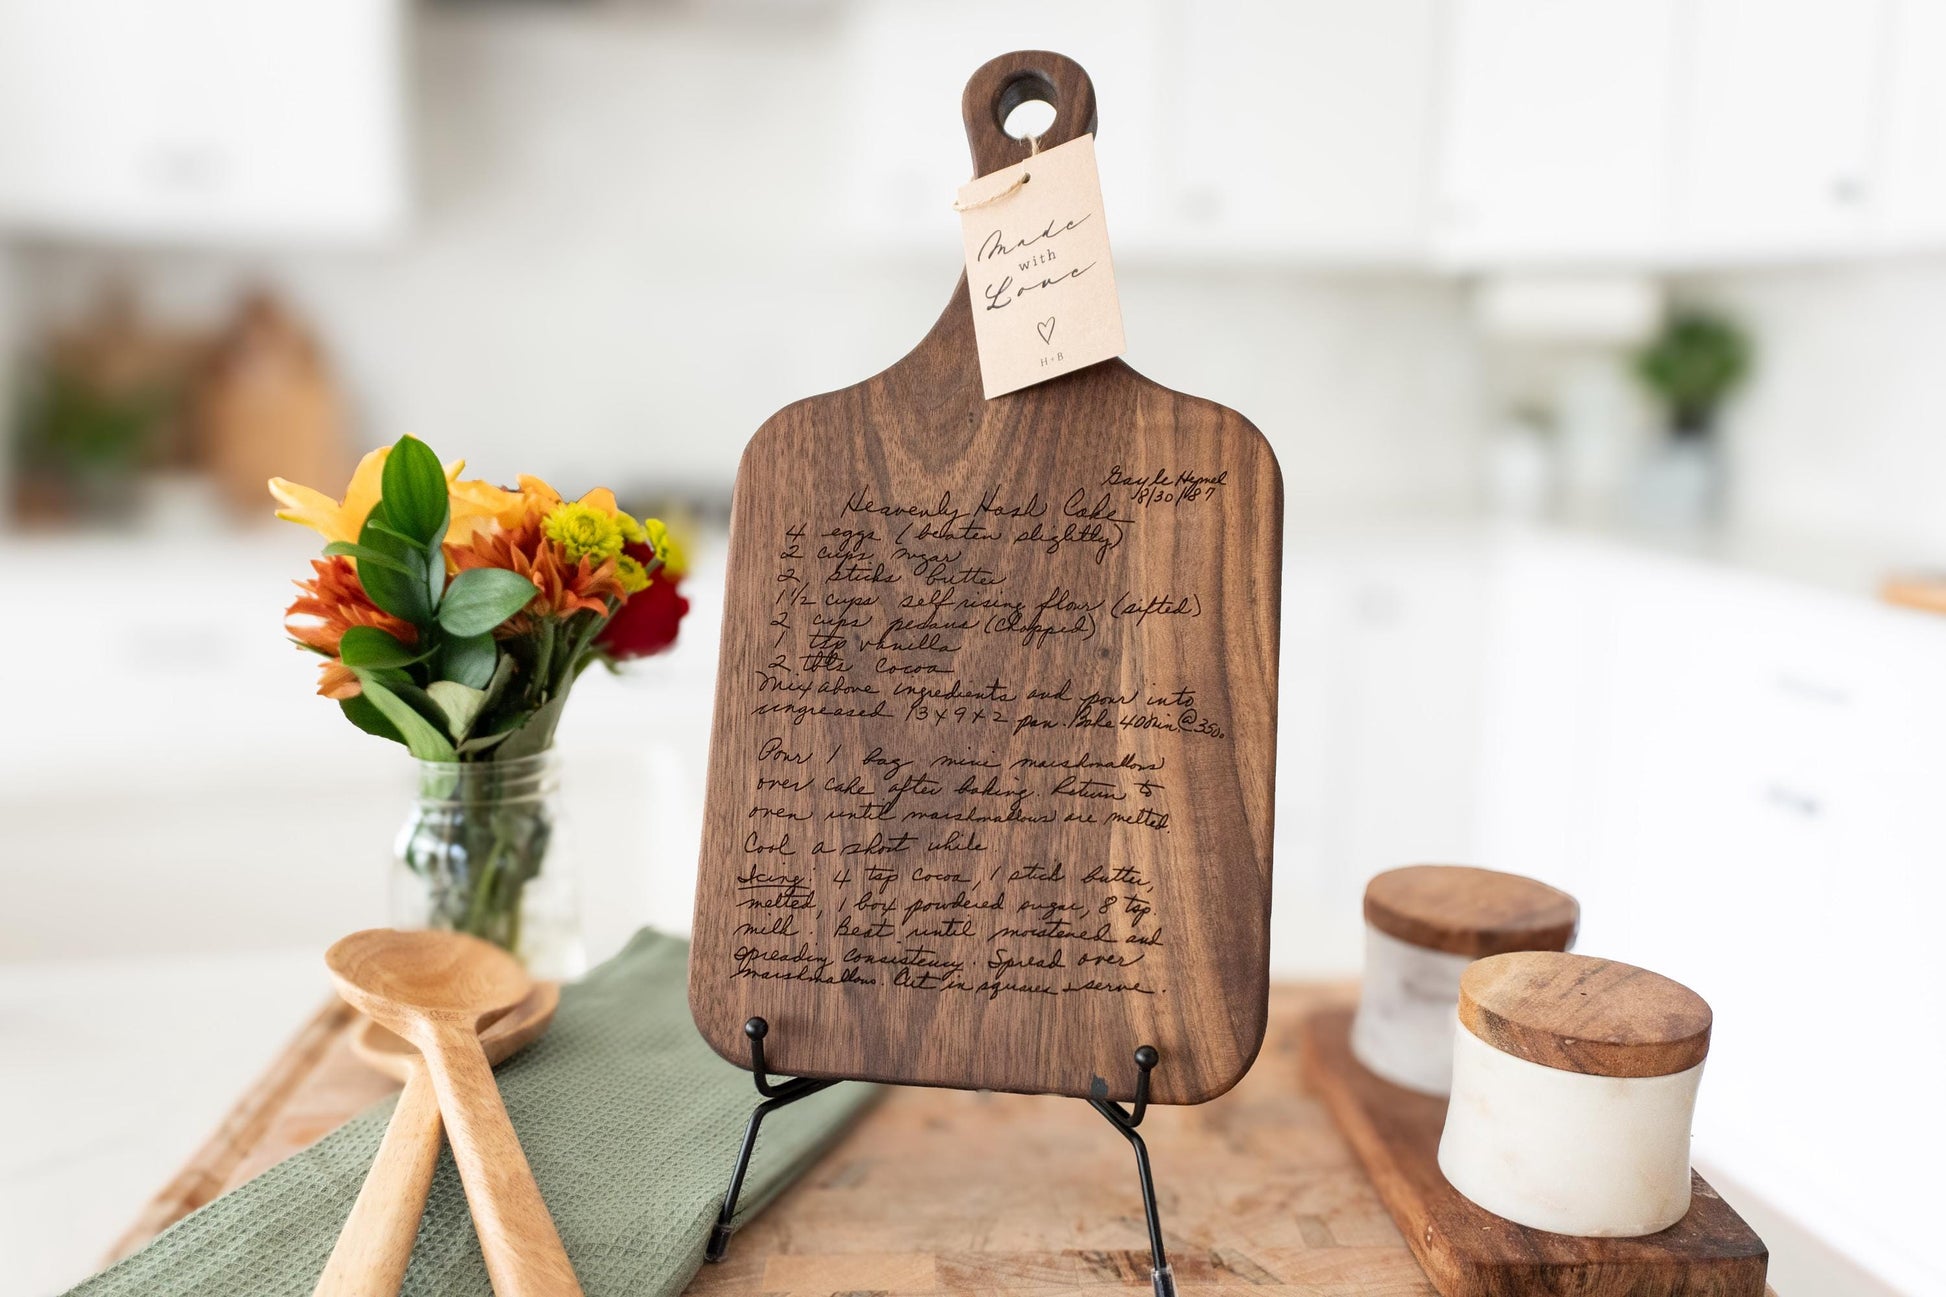 Made
with
Love
H+B
Gayle Hymel
8/30/87
Heavenly Hash Cake
4 eggs (beaten slightly)
2 cups sugar
2 sticks butter
1 1/2 cups self rising flour (sifted)
2 cups pecans (chopped)
1 tsp vanilla
2 tbls cocoa
Mix above ingredients and pour into
ungreased 13x9x2 pan. Bake 40 min. @ 350.
Pour 1 bag mini marshmallows
over cake after baking. Return to
oven until marshmallows are melted.
Cool a short while.
Icing: 4 tsp cocoa, 1 stick butter,
melted, 1 box powdered sugar, 8 tsp.
milk. Beat until moistened and
spreading consistency. Spread over
marshmallows. Cut in squares + serve.